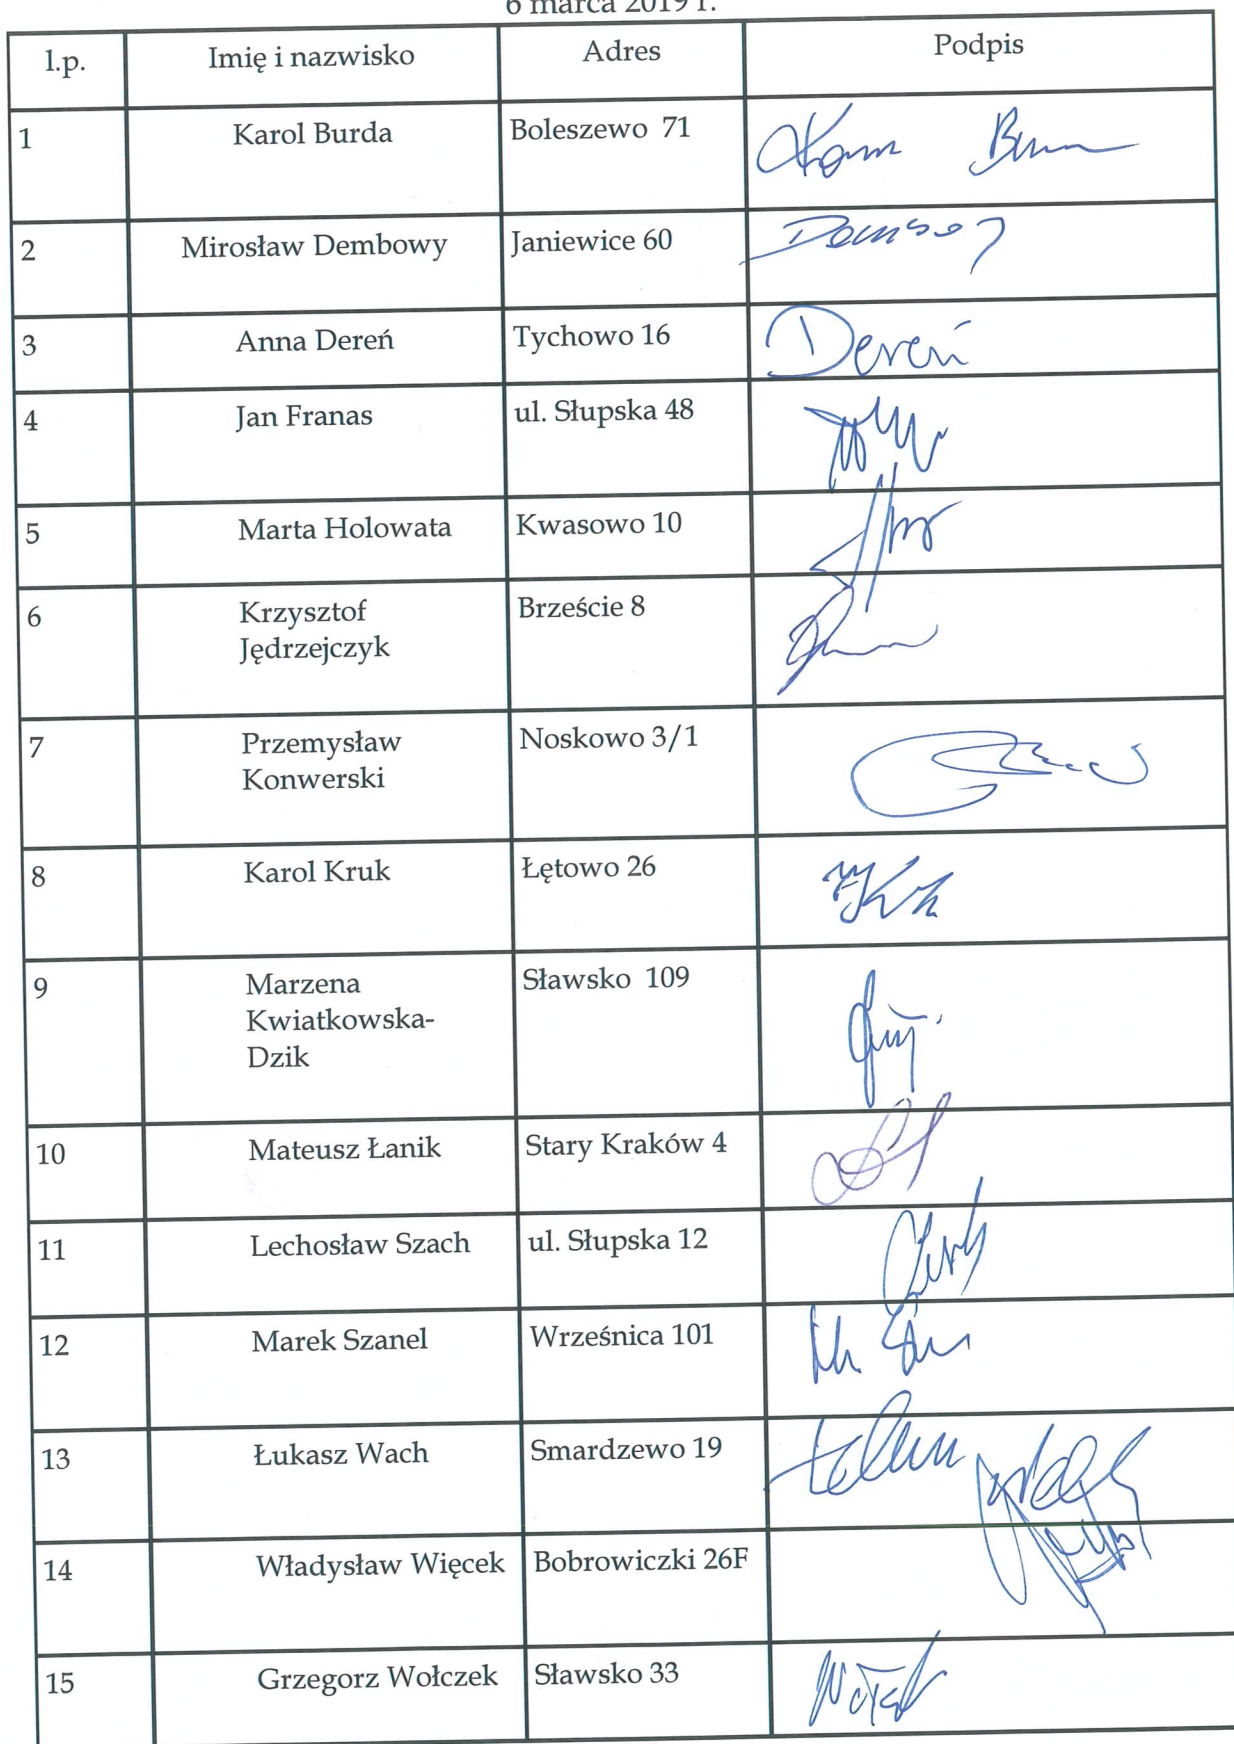 6 marca 2019 r.
l.p. Imię i nazwisko Adres Podpis
1 Karol Burda Boleszewo 71
2 Mirosław Dembowy Janiewice 60
3 Anna Dereń Tychowo 16 Dereń
4 Jan Franas ul. Słupska 48
5 Marta Holowata Kwasowo 10
6 Krzysztof Brzeście 8
Jędrzejczyk
7 Przemysław Noskowo 3/1
Konwerski
8 Karol Kruk Łętowo 26
9 Marzena Sławsko 109
Kwiatkowska-
Dzik
10 Mateusz Łanik Stary Kraków 4
11 Lechosław Szach ul. Słupska 12
12 Marek Szanel Wrześnica 101
13 Łukasz Wach Smardzewo 19
14 Władysław Więcek Bobrowiczki 26F
15 Grzegorz Wołczek Sławsko 33